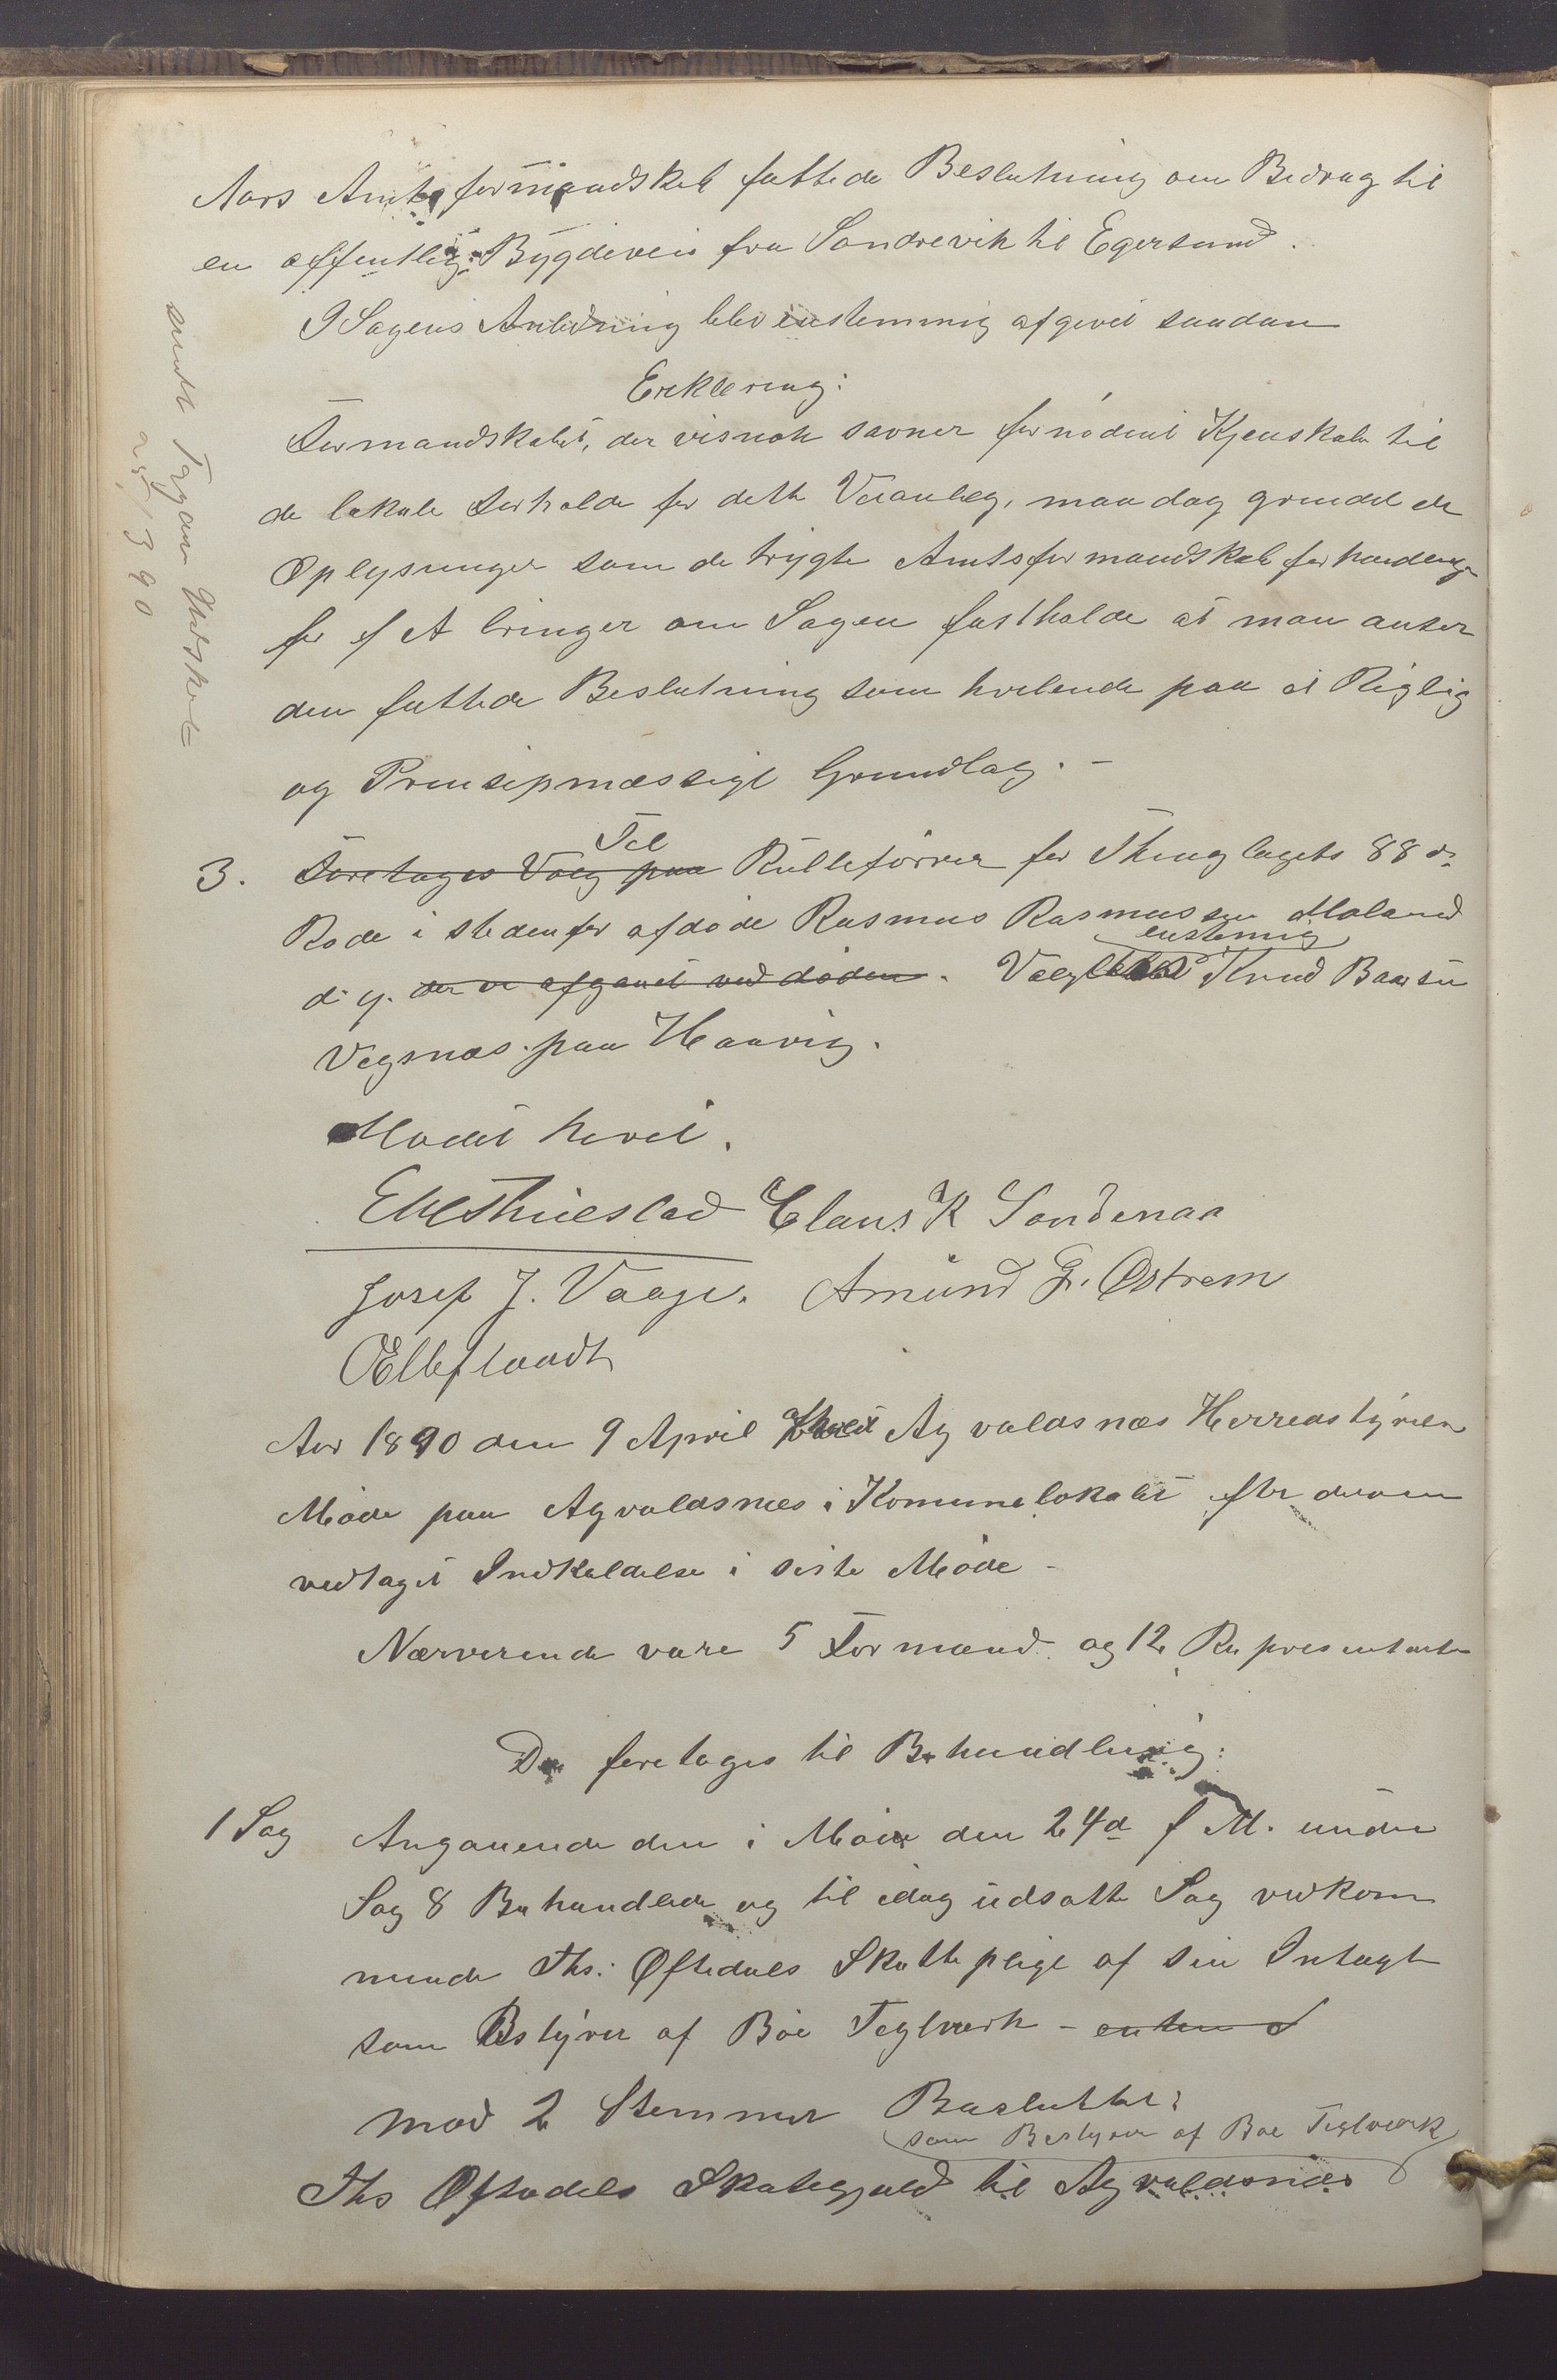 Aars Amtsformandskab fattede Beslutning om Bedrag til
en offentlig Bygdeveis fra Sandrevik til Egersund.
I Sagens Anledning blev enstemmig afgivet saadan
Erklering:
Formandskabet, der visnok savner fornødent Kjenskab til
de lokale Forholde for dette Veianlæg, maa dog grundet de
Oplysninger som de trygte Amtsformandskab forhandlinger
for f A bringer om Sagen fastholde at man anser
den fattede Beslutning som hvilende paa et Rigtig
og Prinsipmæssigt Grundlag. -
sendt Tryggum Udskrift
25/3 90
3. Foretages Valg paa Til Rulleførrer for Thinglagets 88de
Rode i stedenfor afdøde Rasmus Rasmussen Moland
d. y. der er afgaaet ved døden. Valgtes enstemmig Knud Baarsen
Vegsnæs paa Haavig.
Mødet hevet.
Thuestad Claus K Sandenaa
Josef J. Vaage. Amund G. Østrem
O Elleflaadt
Aar 1890 den 9 April afholdt Agvaldsnæs Herredstyrelse
Møde paa Agvaldsnæs i Komunelokalet efter derom
vedtaget Indkaldelse i siste Møde -
Nærverende vare 5 Formænd og 12 Representanter
Da foretages til Behandling:
1 Sag Angaaende den i Møde den 24de f M. under
Sag 8 Behandlede og til idag udsatte Sag vedkom
mende Ths: Øftedals Skattepligt af sin Intægt
som Bestyrer af Bøe Teglværk -
mod 2 Stemmer Besluttet:
som Bestyrer af Bøe Teglværk
Ths Øftedals Skategjæld til Agvaldsnæs